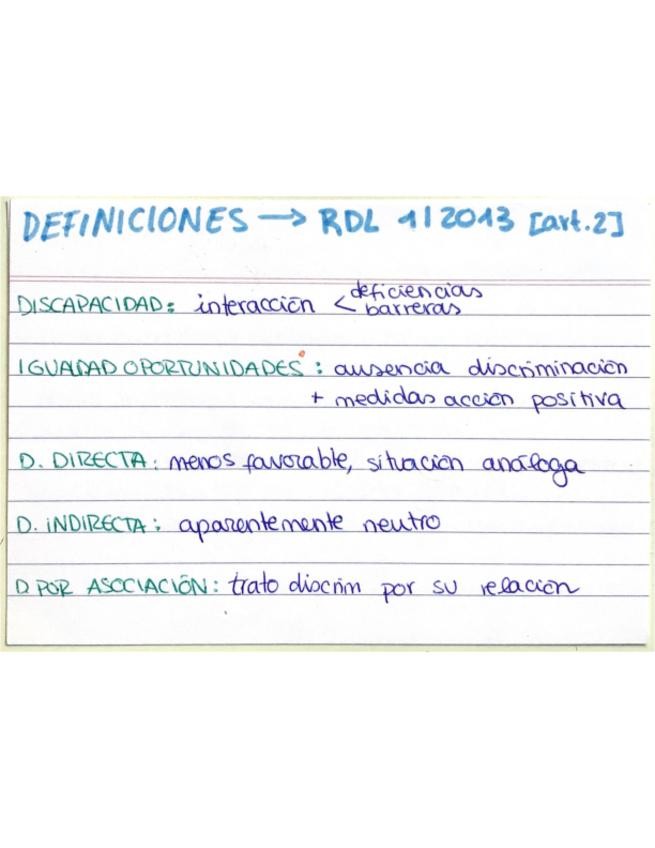 DEFINICIONES → RDL 1/2013 [art.2]
DISCAPACIDAD: interacción < deficiencias
barreras
IGUALDAD OPORTUNIDADES: ausencia discriminación
+ medidas acción positiva
D. DIRECTA: menos favorable, situación análoga
D. INDIRECTA: aparentemente neutro
D. POR ASOCIACIÓN: trato discrim por su relación